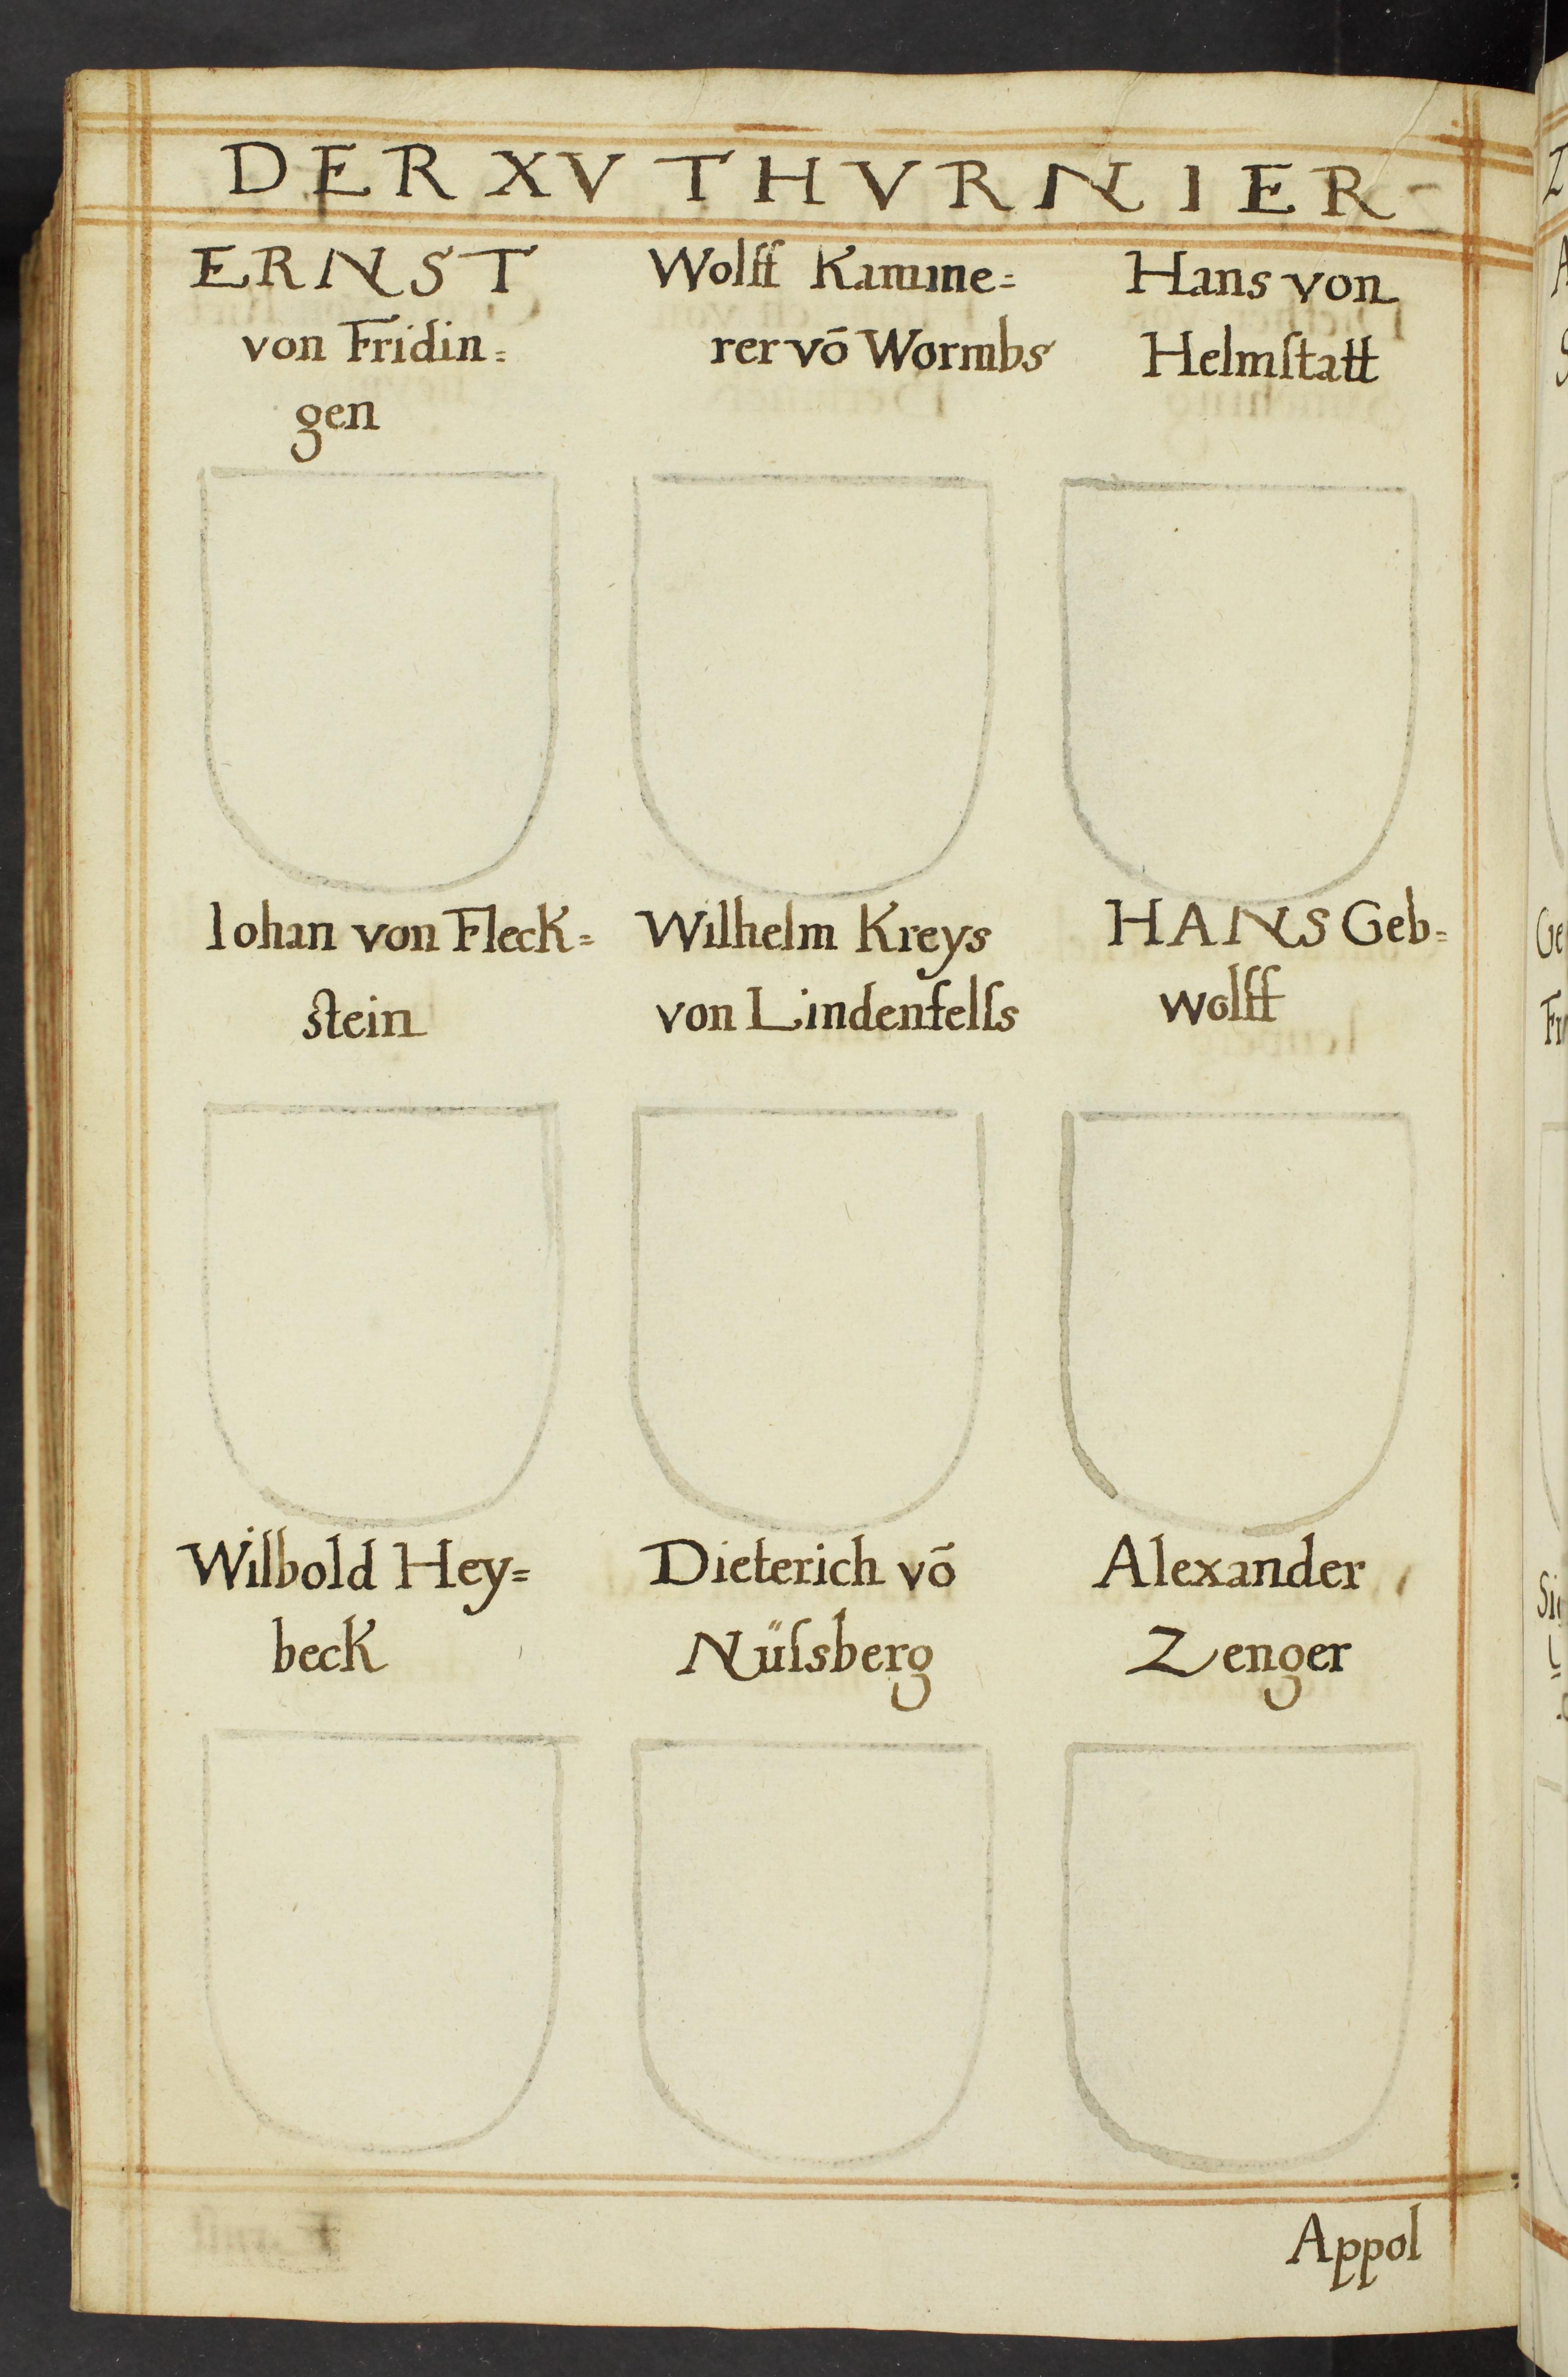 DER XV THVRNIER
ERNST
von Fridin=
gen
Wolff Kamme=
rer vō Wormbs
Hans von
Helmſtatt
Iohan von Fleck=
stein
Wilhelm Kreys
von Lindenfelſs
HANS Geb=
wolff
Wilbold Hey=
beck
Dieterich vō
Nüſsberg
Alexander
Zenger
Appol